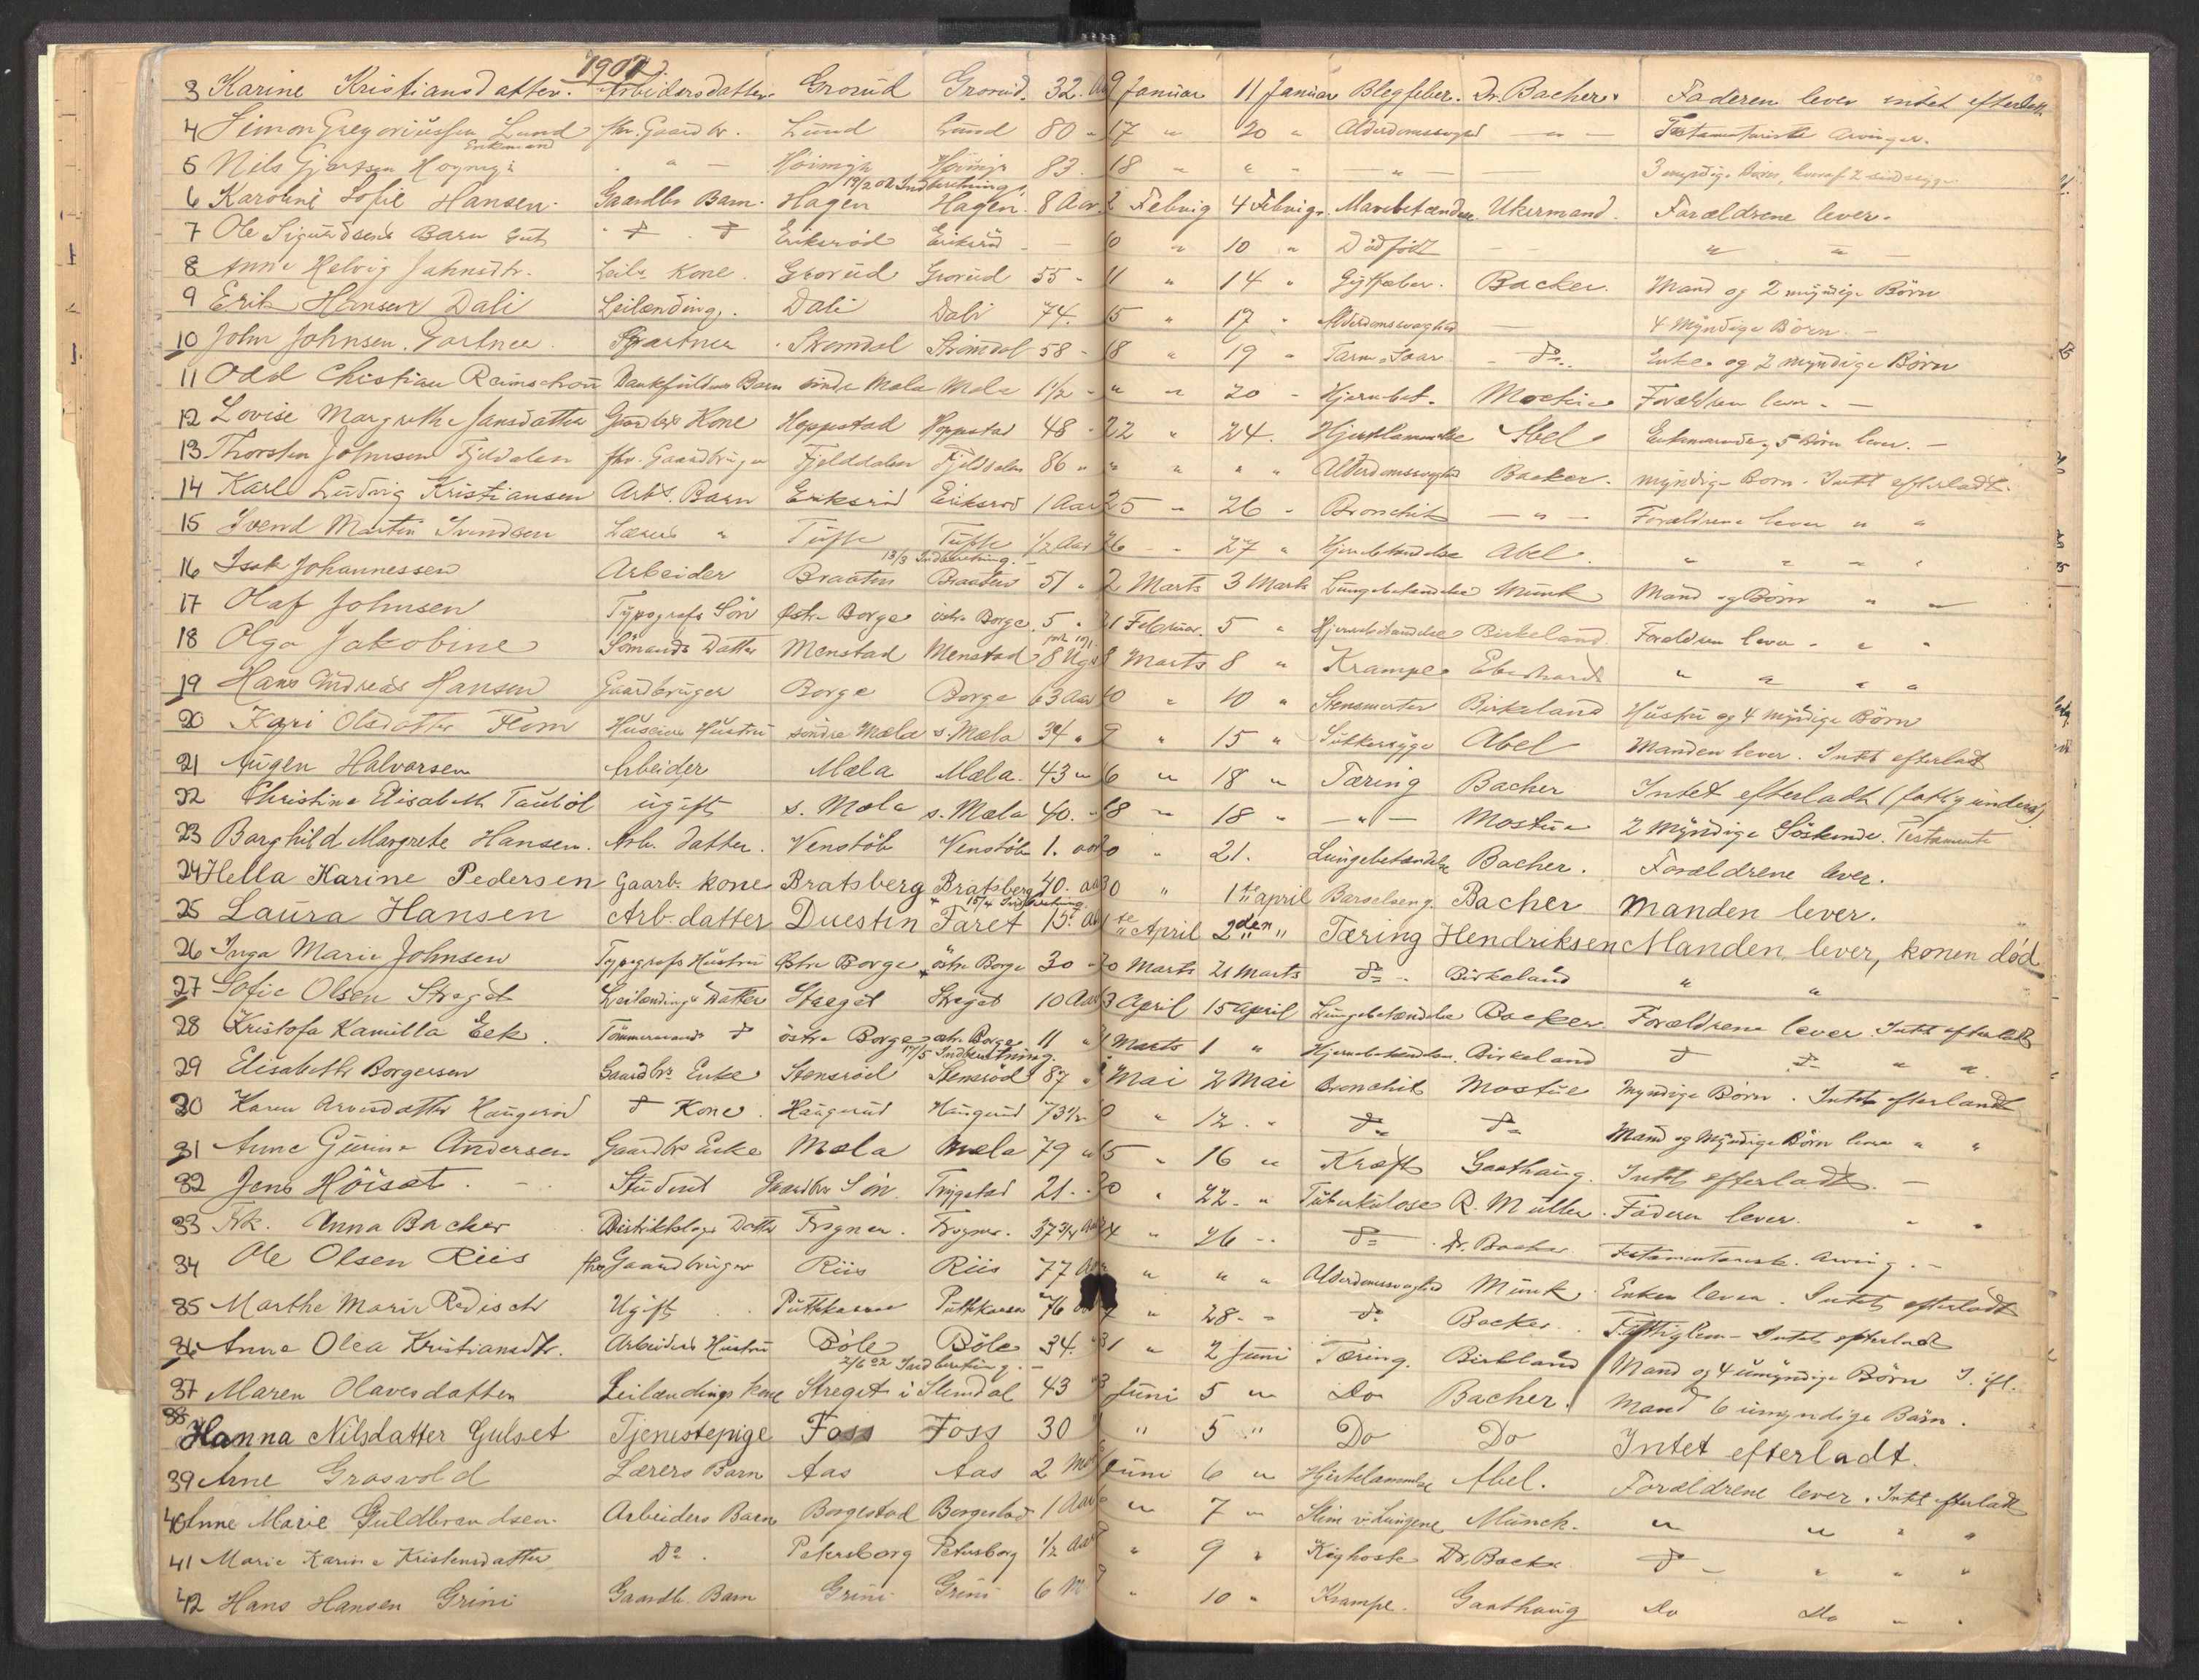 1902
3 Karine Kristiansdatter. Arbeidersdatter Grorud Grorud. 32. Aar 9 Januar 11 Januar Blegfeber. Dr. Bacher. Faderen lever intet efterladt.
4 Simon Gregoriussen Lund fhv. Gaardbr. Lund Lund 80 " 17 " 20 " Alderdomssvaghed — " — Testamentariske Arvinger.
Enkemand
5 Nils " — 83. 18 " " — " — 3 myndige Børn, hvoraf 2 sindssyge
19/2 02 Indberetning.
6 Karoline Sofie Hansen. Gaardbr Barn. Hagen Hagen. 8 Aar. 2 Februar 4 Februar. Ukermand. Forældrene lever.
7 Ole Sigurdsens Barn Gut Do Do Eriksrød Eriksrød — 10 " 10 " Dødfødt — " "
8 Anne Helvig Jahnsdtr. Leil. Kone. Grorud Grorud 55 " 11 " 14 " Gigtfeber. Backer. Mand og 2 myndige Børn
9 Erik Hansen Dali Leilending. Dali Dali 74. 15 " 17 " Alderdomssvaghed — 4 Myndige Børn. —
10 John Johnsen. Gartner. Gartner Stømdal Stømdal 58 " 18 " 19 " Tarm Saar Do Enke og 2 myndige Børn
11 Odd Christian Barn søndr Mæla Mæla 1 1/2 " " " 20 " Hjernebet. Forældren lever. —
12 Lovise Margrethe Jansdatter Gaardbrs Kone Hoppestad Hoppestad 48 " 22 " 24. Hjertelammelse Abel Enkemand og 5 Børn lever. —
13 Thorsten Johnsen Fjelddalen fhv. Gaardbruger Fjelddalen Fjelddalen 86 " " " " " Alderdomssvaghed Backer. myndige Børn. Intet efterladt.
14 Karl Ludvig Kristiansen Arb. Barn Eriksrød Eriksrød 1 Aar 25 " 26 " Bronchit — " — Forældrene lever " "
15 Svend Martin Svendsen Lærers " Tufte Tufte 1/2 Aar 26 " 27 " Hjernebetændelse Abel. " " " "
13/3 Indberetning. —
16 Isak Johannessen Arbeider Braaten Braaten 51 " 2 Marts 3 Marts Lungebetændelse Munk Mand og Børn " "
17 Olaf Johnsen Typografs Søn Østre Borge østre Borge. 5 " 21 Februar. 5 " Hjernebetændelse Birkeland Forældren lever " " "
18 Olga Jakobine Sømands Datter Menstad Menstad 8 Uger 8 Marts 8 " Krampe Eberhardt " " " "
19 Hans Andreas Hansen Gaardbruger Borge Borge 63 Aar 10 " 10 " Stensmerter Birkeland Hustru og 4 Myndige Børn
20 Kari Olsdatter Flom Huseiers Hustru søndre Mæla s. Mæla 34 " 9 " 15 " Sukkersyge Abel Manden lever. Intet efterladt
21 Halvorsen Arbeider Mæla Mæla. 43 " 16 " 18 " Tæring Bacher Intet efterladt (fattigunders.)
22 Christine Elisabeth Taubøl ugift s. Mæla s. Mæla 40. " 18 " 18 " — " — Mostue 2 Myndige Søskende. Testamente
23 Borghild Margrete Hansen. Arb. Datter. Venstøb Venstøb 1. aar 20 " 21. Lungebetændelse Bacher. Forældrene lever.
24 Hella Karine Pedersen Gaarb. kone Bratsberg Bratsberg 40. aar 30 " 1ste april Barselseng. Bacher Manden lever.
15/4 Indberetning.
25 Laura Hansen Arb. datter Duestin Faret 15. Aar 1ste April 2den " Tæring Hendriksen Manden lever, konen død
26 Inga Marie Johnsen Typografs Hustru Østre Borge østre Borge 30 " 20 Marts 21 Marts Do Birkeland " "
27 Sofie Olsen Streget Leilendings Datter Streget Streget 10 Aar 13 April 15 april Lungebetændelse Backer Forældrene lever Intet efterladt
28 Kristofa Kamilla Eek. Tømmermands Do østre Borge østr. Borge 11 " Marts 1 " Hjernebetændelse. Birkeland Do Do " "
17/5 Indberetning.
29 Elisabeth Borgersen Gaardbrs Enke Stensrød Stensrød 87 " Mai 2 Mai Bronchit Mostue Myndige Børn. Intet efterladt
30 Karen Arvesdatter Haugerød Do Kone. Haugerud Haugerud 73 1/2 10 " 12. " Do Do Mand og Myndige Børn lever " "
31 Anne Gurine Andersen Gaardbrs Enke Mæla Mæla 79 " 15 " 16 " Kræft Gaathaug. Intet efterladt. —
32 Jens Høiset. — Student Gaardbr Søn. 21. 20 " 22. " Tuberkulose R. Müller. Faderen lever. " "
33 Frk. Anna Backer Distriktslæges Datter Frogner. Frogner. 37 3/4 Aar 24 " 26 " Do Dr. Backer. Testamentarisk. Arving. —
34 Ole Olsen Riis fhv Gaardbruger Riis Riis 77 Aar " " " " Alderdomssvaghed Munk Enken lever. Intet efterladt
35 Marthe Marie Ugift 76 " 28. " Do Backer. Fattiglem — Intet efterladt
36 Anne Olea Kristiansdtr. Arbeiders Hustru Bøle Bøle 34. " 31 " 2 Juni Tæring. Birkland Mand og 4 umyndige Børn I. ef.
2/6 02 Indberetning. —
37 Maren Olavesdatter Leilændings kone Streget i Slemdal 43 " 3 Juni 5 " Do Bacher. Mand 6 umyndige Børn.
38 Hanna Nilsdatter Gulset Tjenestepige Foss Foss 30 " " 5 " Do Do Intet efterladt.
39 Arne Grasvold Lærers Barn Aas Aas 2 Juni 6 " Hjertelammelse Abel. Forældrene lever. Intet efterladt
40 Anne Marie Guldbrandsen. Arbeiders Barn Borgestad Borgestad 1 Aar " 7 " Slim v Lungene Münck. " " " "
41 Marie Karine Kristensdatter Do. Petersborg Petersborg 1/2 Aar " 9 " Kighoste Dr. Backer Do — " " "
42 Hans Hansen Grini Gaardb. Barn Grini Grini 6 M 9 " 10 " Krampe. Gaathaug Do Do " "